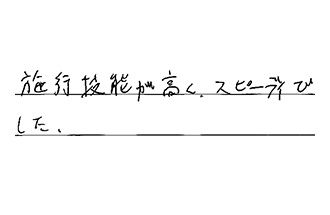 施行技能が高く、スピーディで
した。